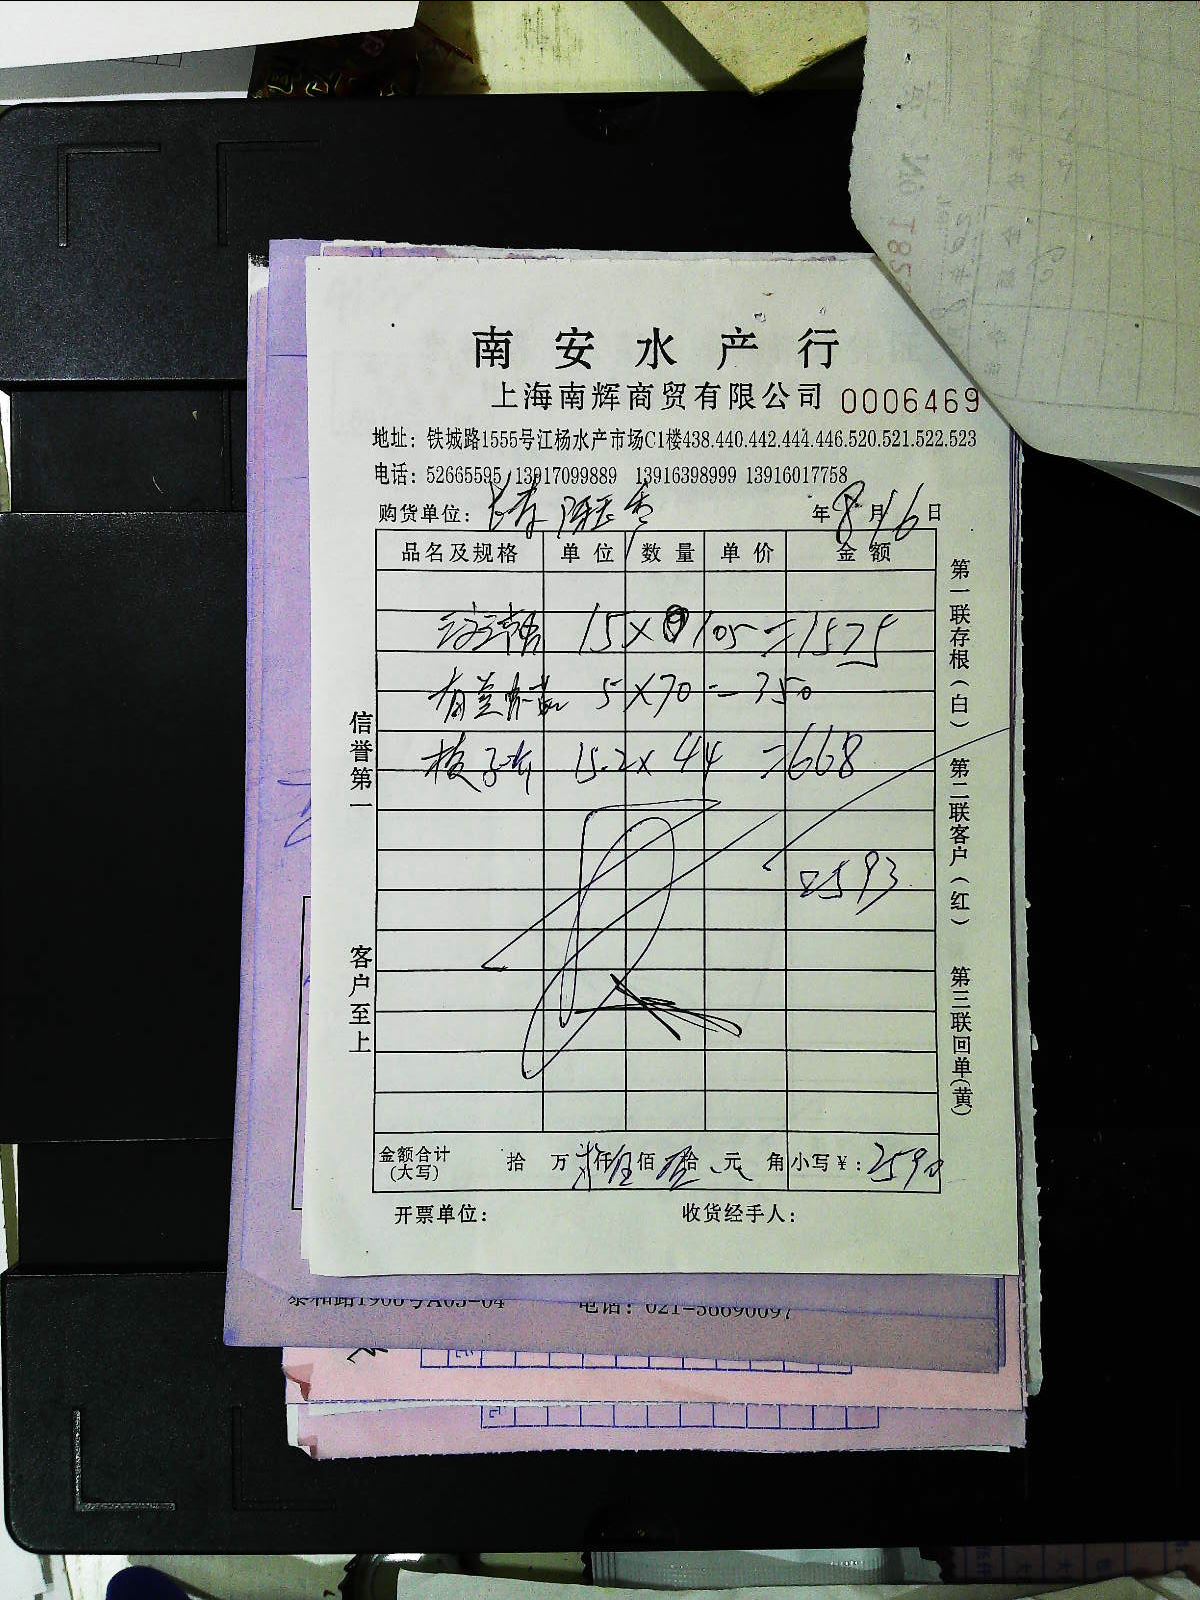 南安水产行
上海南辉商贸有限公司 0006469
地址：铁城路1555号江杨水产市场C1楼438.440.442.444.446.520.521.522.523
电话：52665595 13917099889 13916398999 13916017758
购货单位： 年8月16日
品名及规格 单位 数量 单价 金额
15×105=1575
5×70=350
梭子 15.2×44=668
2593
金额合计（大写） 拾 万 仟伍佰 拾 元 角 小写¥：2590
开票单位： 收货经手人：
信誉第一
客户至上
第一联存根（白）
第二联客户（红）
第三联回单（黄）
泰和路1908号A03-04 电话：021-56690097